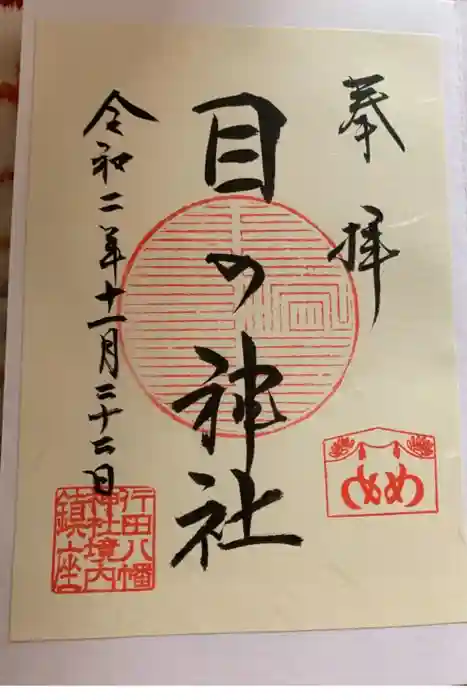 奉拝
目の神社
令和二年十一月二十二日
行田八幡
神社境内
鎮座
めめ